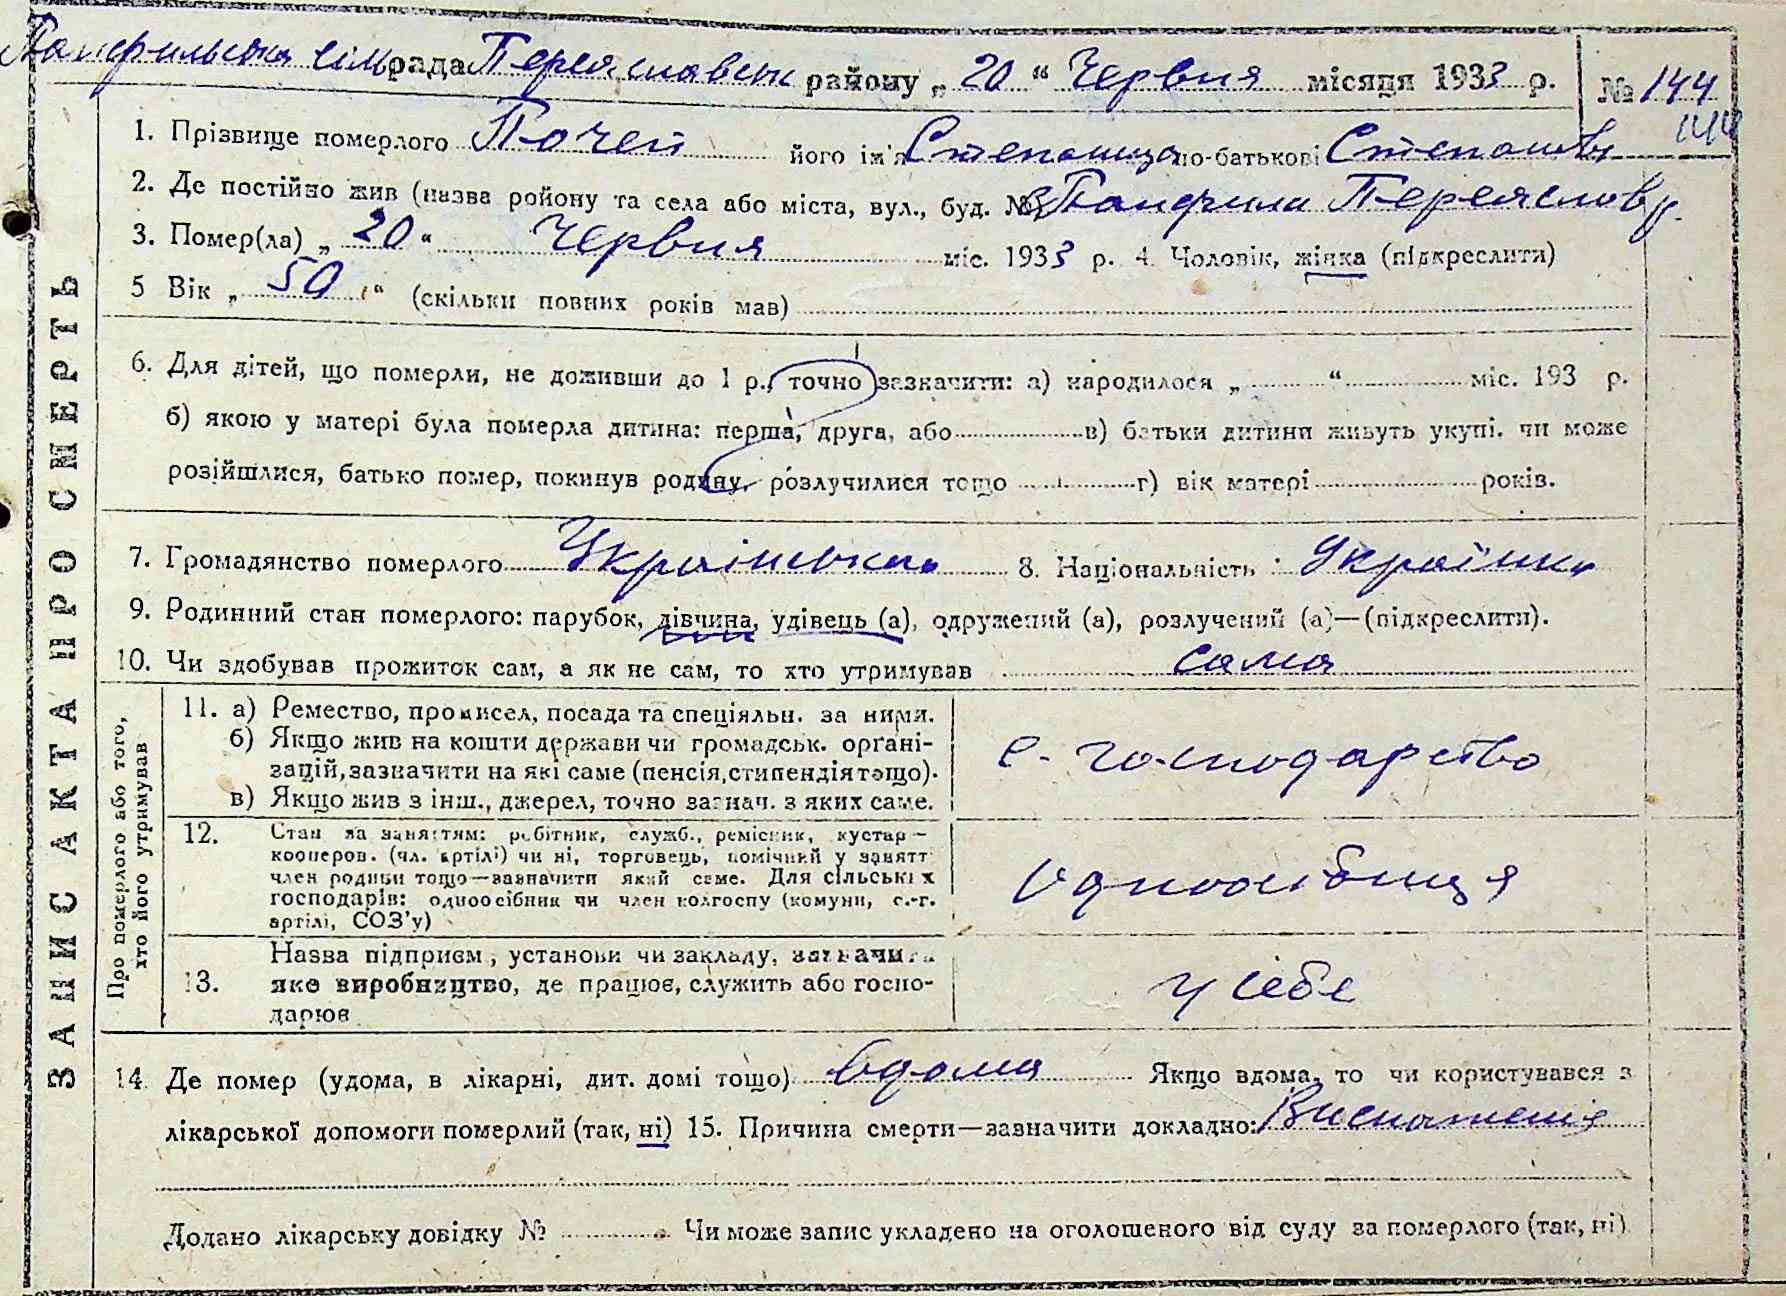 Панфильська сільрада Переяславськ району „20“ Червня місяця 1933 р. № 144
144
1. Прізвище померлого Почеп його ім'я Степанида по-батькові Степанівн
2. Де постійно жив (назва ройону та села або міста, вул., буд. № Панфили Переяслов р.
3. Помер(ла) „20“ Червня міс. 1933 р. 4. Чоловік, жінка (підкреслити)
5 Вік „50“ (скільки повних років мав)
6. Для дітей, що померли, не доживши до 1 р., точно зазначити: а) народилося „ “ міс. 193 р.
б) якою у матері була померла дитина: перша, друга, або в) батьки дитини живуть укупі. чи може
розійшлися, батько помер, покинув родину, розлучилися тощо г) вік матері років.
7. Громадянство померлого Українська 8. Національність Українка
9. Родинний стан померлого: парубок, дівчина, удівець (а), одружений (а), розлучений (а)—(підкреслити).
10. Чи здобував прожиток сам, а як не сам, то хто утримував сама
Про померлого або того, хто його утримував
11. а) Ремество, промисел, посада та спеціяльн. за ними.
б) Якщо жив на кошти держави чи громадськ. органі-
зацій, зазначити на які саме (пенсія, стипендія тощо).
в) Якщо жив з інш., джерел, точно зазнач. з яких саме.
с. господарство
12. Стан за заняттям: робітник, служб., ремісник, кустар-
кооперов. (чл. артілі) чи ні, торговець, помічний у занятт
член родини тощо—зазначити який саме. Для сільських
господарів: одноосібник чи член колгоспу (комуни, с.-г.
артілі, СОЗ'у)
Одноосібниця
13. Назва підприєм, установи чи закладу, зазначити
яке виробництво, де працює, служить або госпо-
дарює
у себе
14. Де помер (удома, в лікарні, дит. домі тощо) вдома Якщо вдома, то чи користувався з
лікарської допомоги померлий (так, ні) 15. Причина смерти—зазначити докладно: Виснаження
Додано лікарську довідку № Чи може запис укладено на оголошеного від суду за померлого (так, ні)
ЗАПИС АКТА ПРО СМЕРТЬ